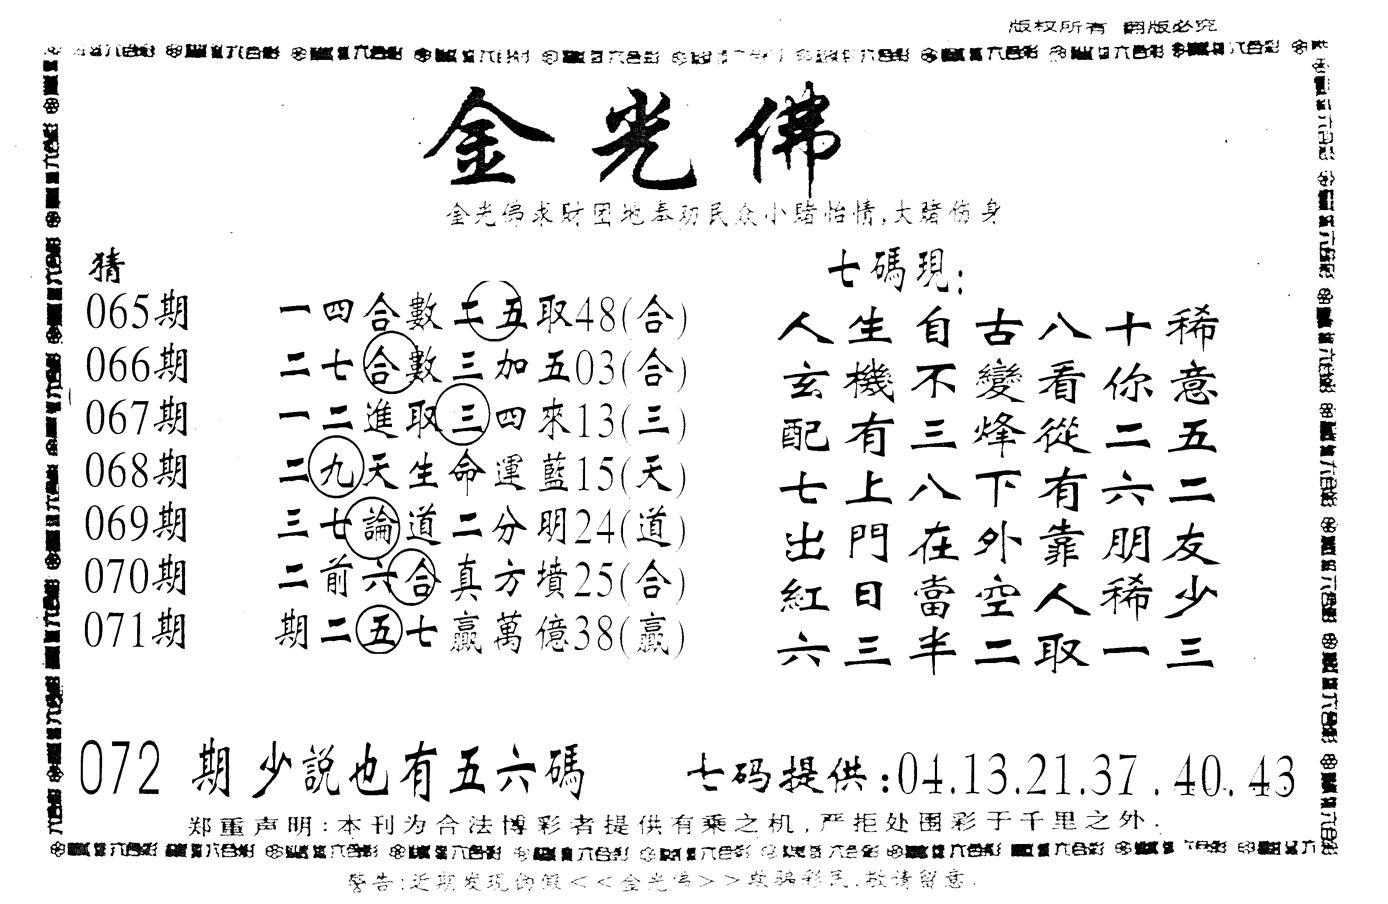 版权所有 翻版必究
金光佛
金光佛求财团地奉劝民众小赌怡情,大赌伤身
猜
065期 一四合數二五取48(合)
066期 二七合數三加五03(合)
067期 一二進取三四來13(三)
068期 二九天生命運藍15(天)
069期 三七論道二分明24(道)
070期 二前六合真方墳25(合)
071期 期二五七贏萬億38(贏)
七碼現:
人生自古八十稀
玄機不變看你意
配有三烽從二五
七上八下有六二
出門在外靠朋友
紅日當空人稀少
六三半二取一三
072 期 少説也有五六碼
七码提供:04.13.21.37.40.43
郑重声明:本刊为合法博彩者提供有乘之机,严拒处围彩于千里之外.
警告:近期发现的假<<金光佛>>欺骗彩民.敬请留意.